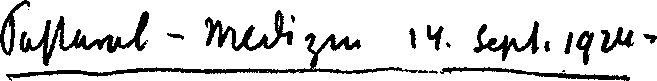 Pastoral - Medizin 14. Sept. 1924 -